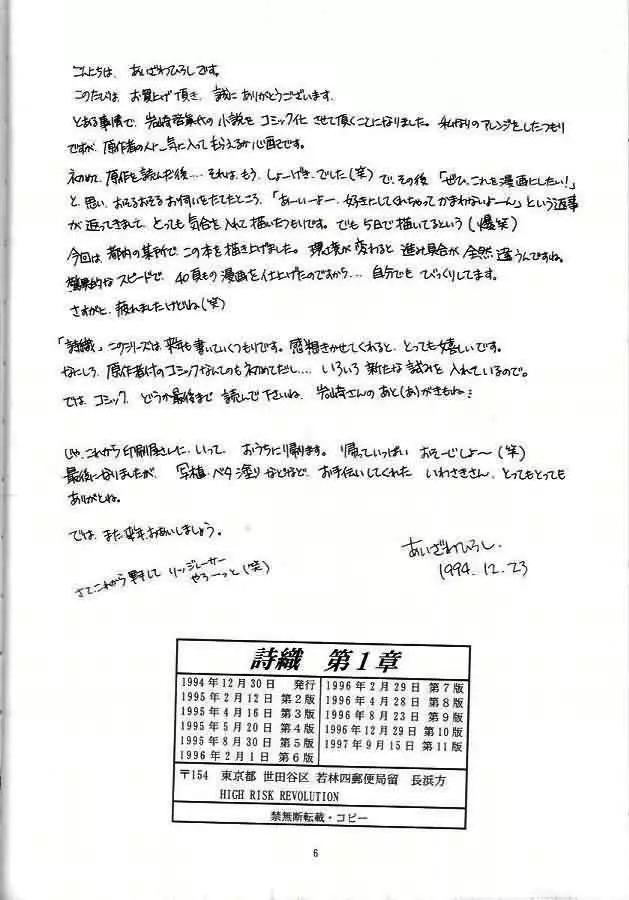 こんにちは、あいざわひろしです。
このたびは、お買上げ頂き、誠にありがとうございます。
とある事情で、岩崎啓眞代の小説をコミック化させて頂くことになりました。私なりのアレンジをしたつもり
ですが、原作者の人に気に入ってもらえるか心配です。
初めて、原作を読んだ後…それは、もう、しょーげき、でした(笑)で、その後「ぜひ、これを漫画にしたい!」
と思い、おそるおそるお伺いをたてたところ、「あーいーよー、好きにしてくれちゃってかまわないよーん」という返事
が返ってきました、とっても気合を入れて描いたつもりです。でも5日で描いてるという(爆笑)
今回は、都内の某所で、この本を描き上げました。環境が変わると、進み具合が全然違うんですね。
驚異的なスピードで、40頁もの漫画を仕上げたのですから…自分でもびっくりしてます。
さすがに、疲れましたけどね(笑)
「詩織」このシリーズは、来年も書いていくつもりです。感想きかせてくれると、とっても嬉しいです。
なにしろ、原作者付のコミックなんてのも初めてだし…いろいろ新たな試みを入れているので。
では、コミック、どうか最後まで読んで下さいね、岩崎さんのあと(あ)がきもね…
じゃ、これから印刷屋さんに、いって、おうちに帰ります。帰っていっぱいおそーじしよ〜(笑)
最後になりましたが、写植・ベタ塗りなどなど、お手伝いしてくれたいわさきさん、とってもとっても
ありがとね。
では、また来年、お会いしましょう。
さて、これから
リッジレーサー
やろーっと(笑)
あいざわひろし.
1994.12.23
詩織 第1章
1994年12月30日 発行
1995年2月12日 第2版
1995年4月16日 第3版
1995年5月20日 第4版
1995年8月30日 第5版
1996年2月1日 第6版
1996年2月29日 第7版
1996年4月28日 第8版
1996年8月23日 第9版
1996年12月29日 第10版
1997年9月15日 第11版
〒154 東京都 世田谷区 若林四郵便局留 長浜方
HIGH RISK REVOLUTION
禁無断転載・コピー
6